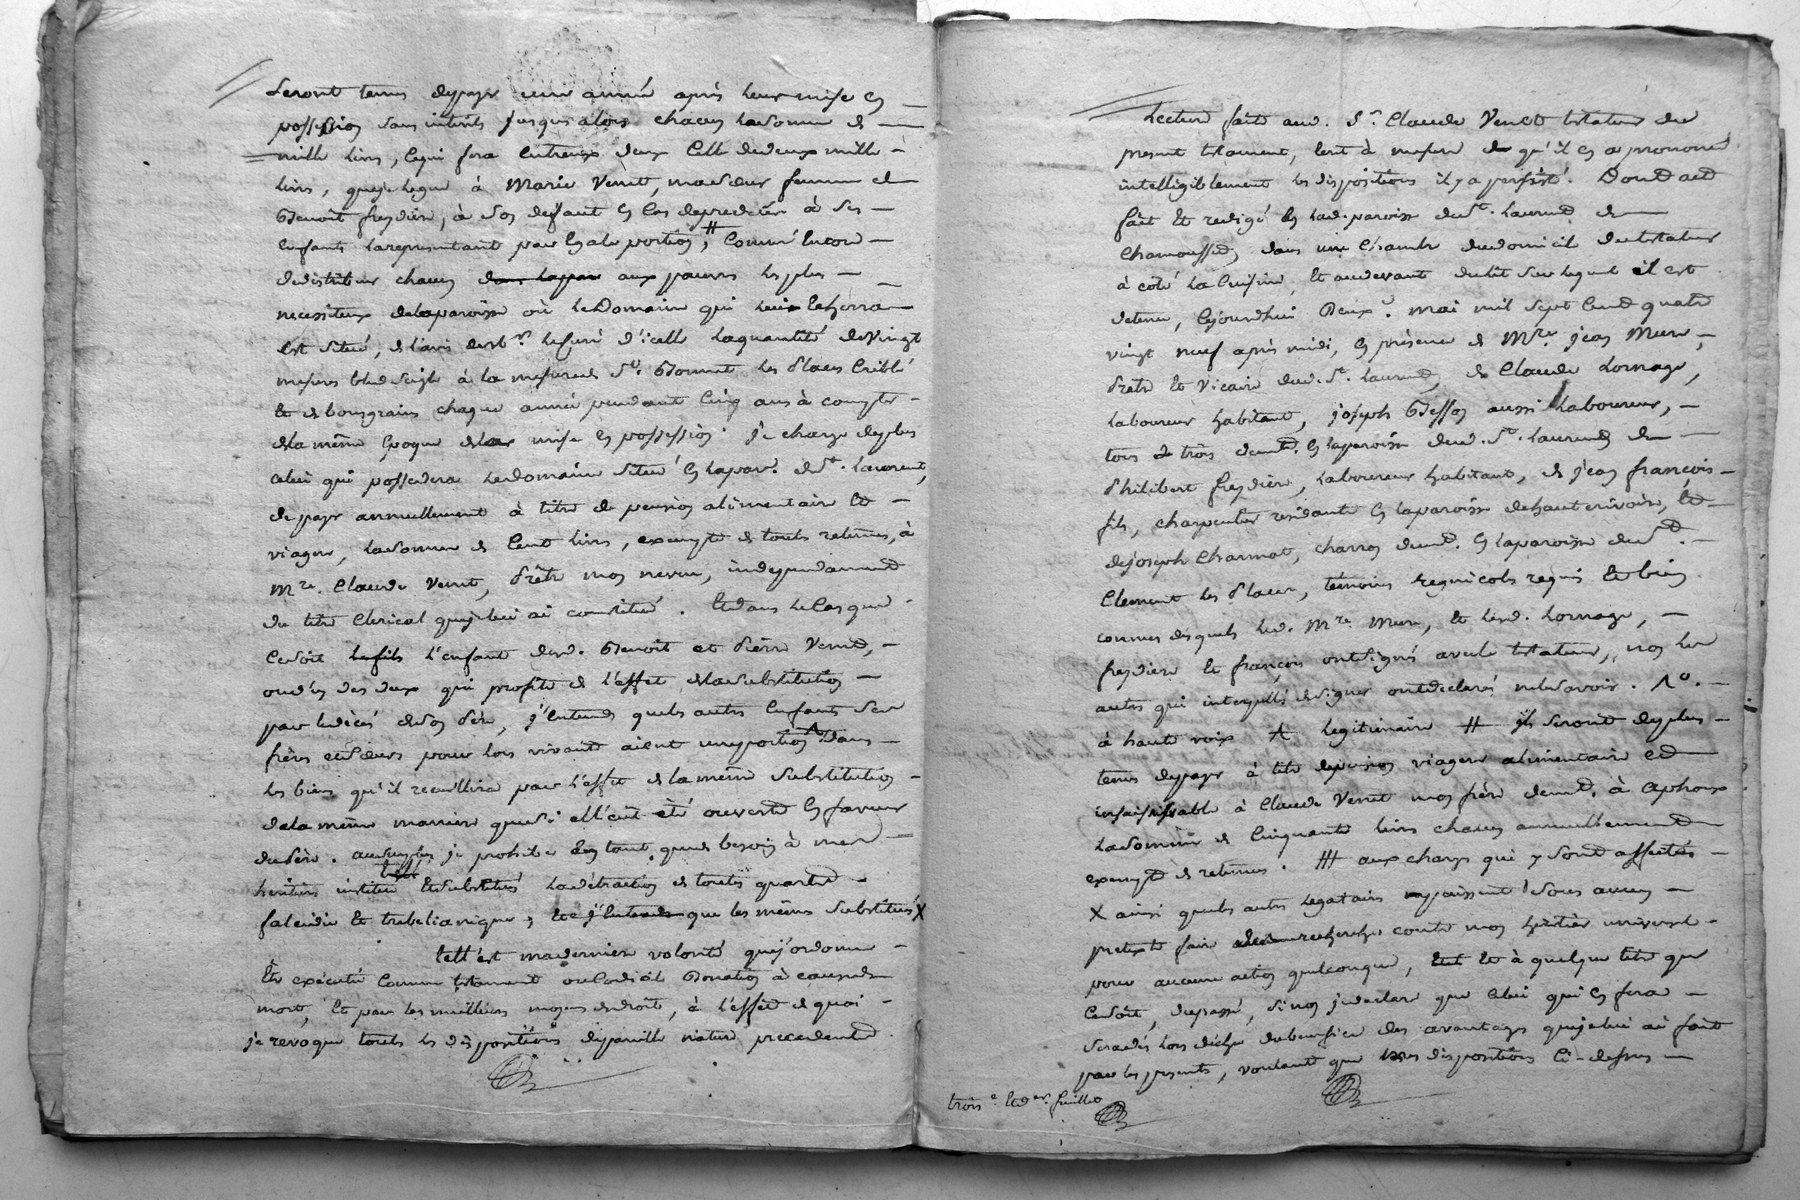 seront tenus depayer une année après leur mise en
possession sans interets jusqu'alors chacun la somme de
mille livres, cequi fera entreux deux celle dedeux mille
livres, queje legue à Marie Venet, masœur femme de
Benoit freydiere, à son deffaut en cas depredecès à ses
enfants larepresentant par egale portion, comm'encore
dedistribuer chacun aux pauvres les plus
necessiteux delaparoisse où leDomaine qui leur
est situé, de l'avis de le curé d'icelle laquantité devingt
mesures bled seigle à la mesure de St. Bonnet les places criblé
et de bon grains chaque année pendant cinq ans à compter
dela même epoque de mise en possession. je charge deplus
celui qui possedera ledomaine situé en lapar. de St. Laurent,
de payer annuellement à titre de pension alimentaire et
viagere, lasomme de cent livres, exempte de toutes retenues, à
Mre. Claude Venet, Prêtre mon neveu, independamment
du titre clerical quejelui ai constitué. Et dans le cas que
cesoit le fils l'enfant desd. Benoit et Pierre Venet,
oud'un des deux qui profite de l'effet delasubstitution
par ledécés deson Père, j'entends queles autres enfants ses
frères etsœurs pour lors vivants aient uneportion dans
les biens qu'il recuillira par l'effet de la même substitution
dela même maniere quesi elle eut été ouverte en faveur
dupère. ausurplus je prohibe en tant que de besoin à mes
heritiers institué etsubstitués ladétraction de toutes quartes
falcidie et trebelianique; et j'entends que les mêmes substitués X
tell'est maderniere volonté quej'ordonne
Etre exécuté comme testament oucodicil Donation à causede
mort, et par les meilleurs moyens dedroit, à l'effet de quoi
je revoque toutes les dispositions depareille nature precedente
Lecture faite aud. Sr. Claude Venet testateur du
present testament, tant à mesure qu'il en a prononcé
intelligiblement les dispositions il y a persisté. Dont acte
fait et redigé en lad. paroisse de St. Laurent de
Chamousset, dans une chambre dudomicile dutestateur
à coté la cuisine, et audevant dulit sur lequel il est
detenu, cejourdhui Deux. mai mil sept cent quatre
vingt neuf après midi, en présence de Mre. jean Mure,
Prêtre et Vicaire dud. St. Laurent, de Claude Lornage,
laboureur habitant, joseph Besson aussi Laboureur,
tous trois demt. en laparoisse dud. St. Laurent de
Philibert freydiere, laboureur habitant, de jean françois
fils, charpentier residants en laparoisse dehauterivoire, et
dejoseph Charmat, charron demt. en laparoisse de St.
Clement les Places, temoins regnicoles requis et bien
connus desquels led. Mre. Mure, et led. Lornage,
freydiere et françois ontsignés avecle testateur, non les
autres qui interpellés designer ontdeclarés nelesavoir. 1o.
à haute voix A legitimaire # ils seront deplus
tenus depayer à titre depension viagere alimentaire et
insaisissable à Claude Venet mon frère demt. à
lasomme de cinquante livres chacun annuellement
exempte de retenues. ## aux charges qui y sont affectées
X ainsi queles autres legataires nepuissent sous aucun
pretexte faire recherche contre mon heritier universel
pour aucune action quelconque, et à quelque titre que
cesoit, dupassé, sinon jedeclare que celui qui en fera
sera dès lors déchu dubenefice des avantages quejelui ai fait
par les presents, voulant que mes dispositions ci-dessus
trois.e et der. feuillet